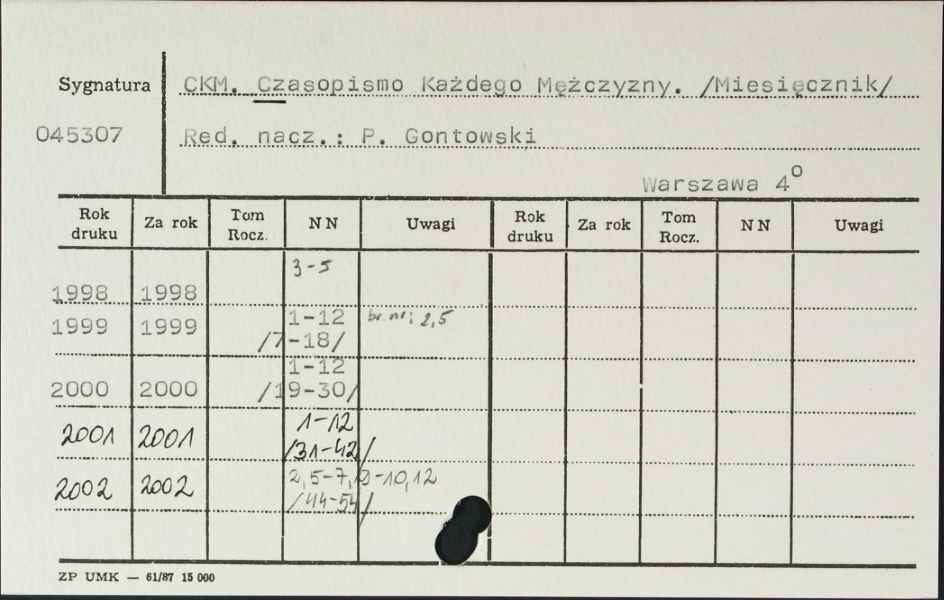 Sygnatura CKM. Czasopismo Każdego Mężczyzny. /Miesięcznik/
045307 Red. nacz.: P. Gontowski
Warszawa 4°
Rok druku Za rok Tom Rocz. NN Uwagi Rok druku Za rok Tom Rocz. NN Uwagi
3-5
1998 1998
1999 1999 1-12 br. nr: 2,5
/7-18/
1-12
2000 2000 /19-30/
2001 2001 1-12
/31-42/
2002 2002 2,5-7, -10,12
/44-54/
ZP UMK — 61/87 15 000